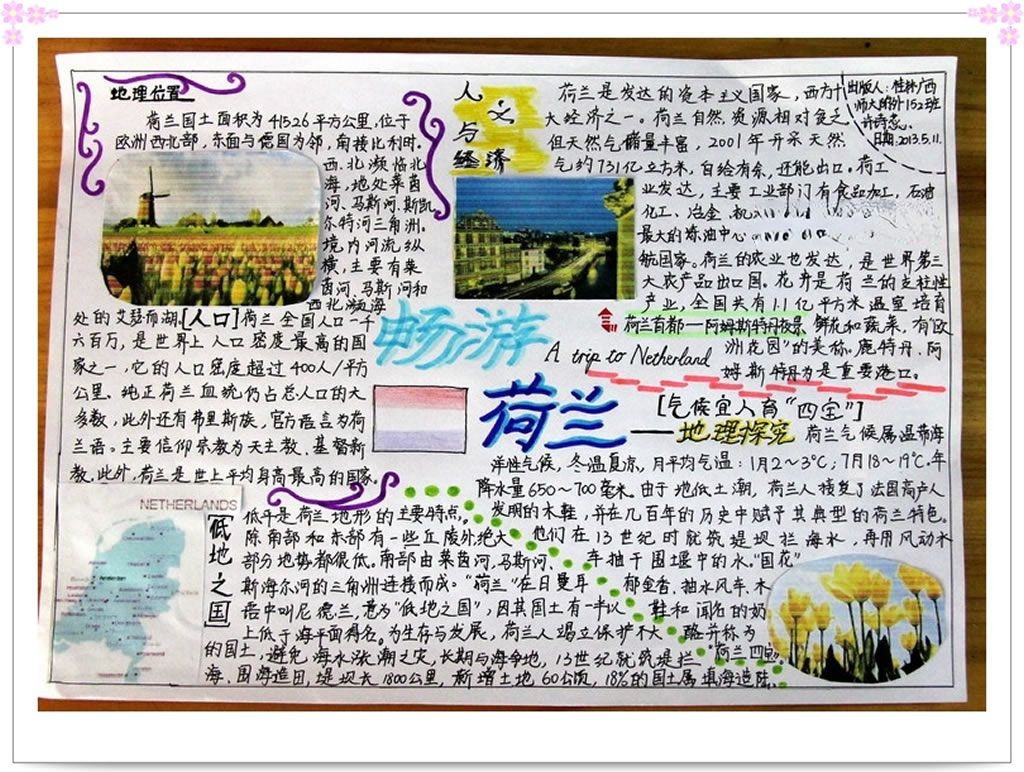 地理位置
荷兰国土面积为41526平方公里,位于
欧洲西北部,东面与德国为邻,南接比利时。
西、北濒临北
海,地处莱茵
河、马斯河、斯凯
尔特河三角洲。
境内河流纵
横,主要有莱
茵河、马斯河和
西北濒海
处的艾瑟而湖。[人口]荷兰全国人口一千
六百万,是世界上人口密度最高的国
家之一,它的人口密度超过400人/平方
公里。纯正荷兰血统仍占总人口的大
多数,此外还有弗里斯族,官方语言为荷
兰语。主要信仰宗教为天主教、基督新
教。此外,荷兰是世上平均身高最高的国家。
人文
与
经济
荷兰是发达的资本主义国家,西方十
大经济之一。荷兰自然资源相对贪乏
但天然气储量丰富,2001年开采天然
气约731亿立方米,自给有余,还能出口。荷工
业发达,主要工业部门有食品加工,石油
化工、冶金、机
最大的炼油中心
航国家。荷兰的农业也发达,是世界第三
大农产品出口国。花卉是荷兰的支柱性
产业,全国共有1.1亿平方米温室培育
鲜花和蔬菜,有“欧
洲花园”的美称。鹿特丹、阿
姆斯特丹为是重要港口。
出版人:桂林广西
师大附外152班
日期:2013.5.11.
荷兰首都——阿姆斯特丹夜景
畅游
A trip to Netherland
荷兰
[气候宜人育“四宝”]
——地理探究
荷兰气候属温带海
洋性气候,冬温夏凉,月平均气温:1月2~3℃;7月18~19℃.年
降水量650~700毫米。由于地低土潮,荷兰人接受了法国高户人
发明的木鞋,并在几百年的历史中赋予其典型的荷兰特色。
他们在13世纪时就筑堤坝拦海水,再用风动水
车抽干围堰中的水。“国花”
郁金香、抽水风车、木
鞋和闻名的奶
酪并称为
“荷兰四宝”
NETHERLANDS
[低地之国]
低平是荷兰地形的主要特点。
除南部和东部有一些丘陵外绝大
部分地势都很低。南部由莱茵河、马斯河、
斯海尔河的三角洲连接而成。“荷兰”在日曼耳
语中叫尼德兰,意为“低地之国”,因其国土有一半以
上低于海平面得名。为生存与发展,荷兰人竭立保护不大
的国土,避免海水涨潮之灾,长期与海争地,13世纪就筑堤拦
海,围海造田,堤坝长1800公里,新增土地60公顷,18%的国土属填海造陆。